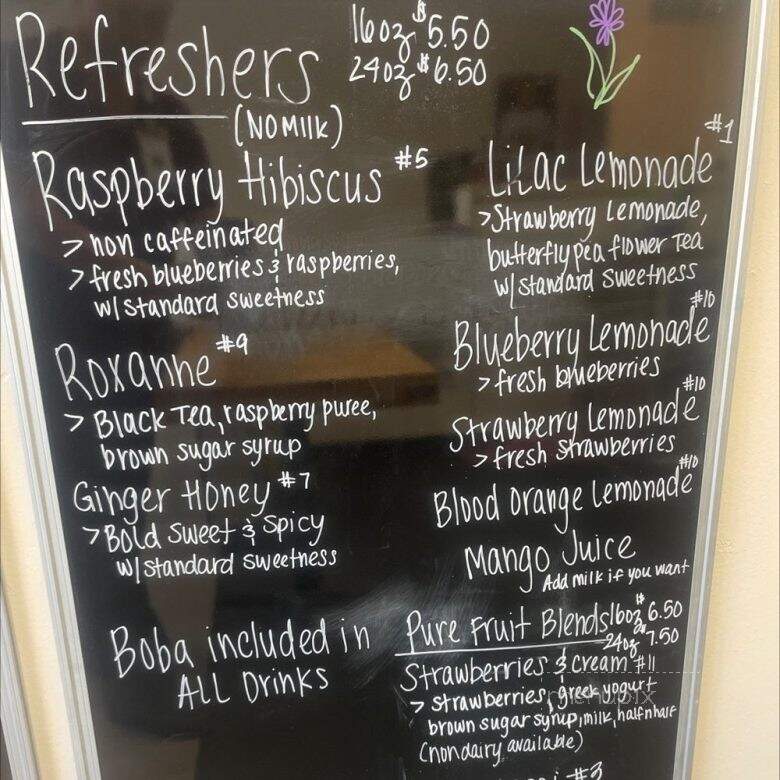 Refreshers
16oz $5.50
24oz $6.50
(NO MILK)
Raspberry Hibiscus #5
> non caffeinated
> fresh blueberries & raspberries,
w/ standard sweetness
Roxanne #9
> Black Tea, raspberry puree,
brown sugar syrup
Ginger Honey #7
> Bold Sweet & Spicy
w/ standard sweetness
Boba included in
ALL Drinks
Lilac Lemonade #1
> Strawberry Lemonade,
butterfly pea flower Tea
w/ standard sweetness
Blueberry Lemonade #10
> fresh blueberries
Strawberry Lemonade #10
> fresh strawberries
Blood Orange Lemonade #10
Mango Juice
Add milk if you want
Pure Fruit Blends 16oz $6.50
24oz $7.50
Strawberries & cream #11
> strawberries, greek yogurt
brown sugar syrup, milk, half n half
(nondairy available)
#3
menupix